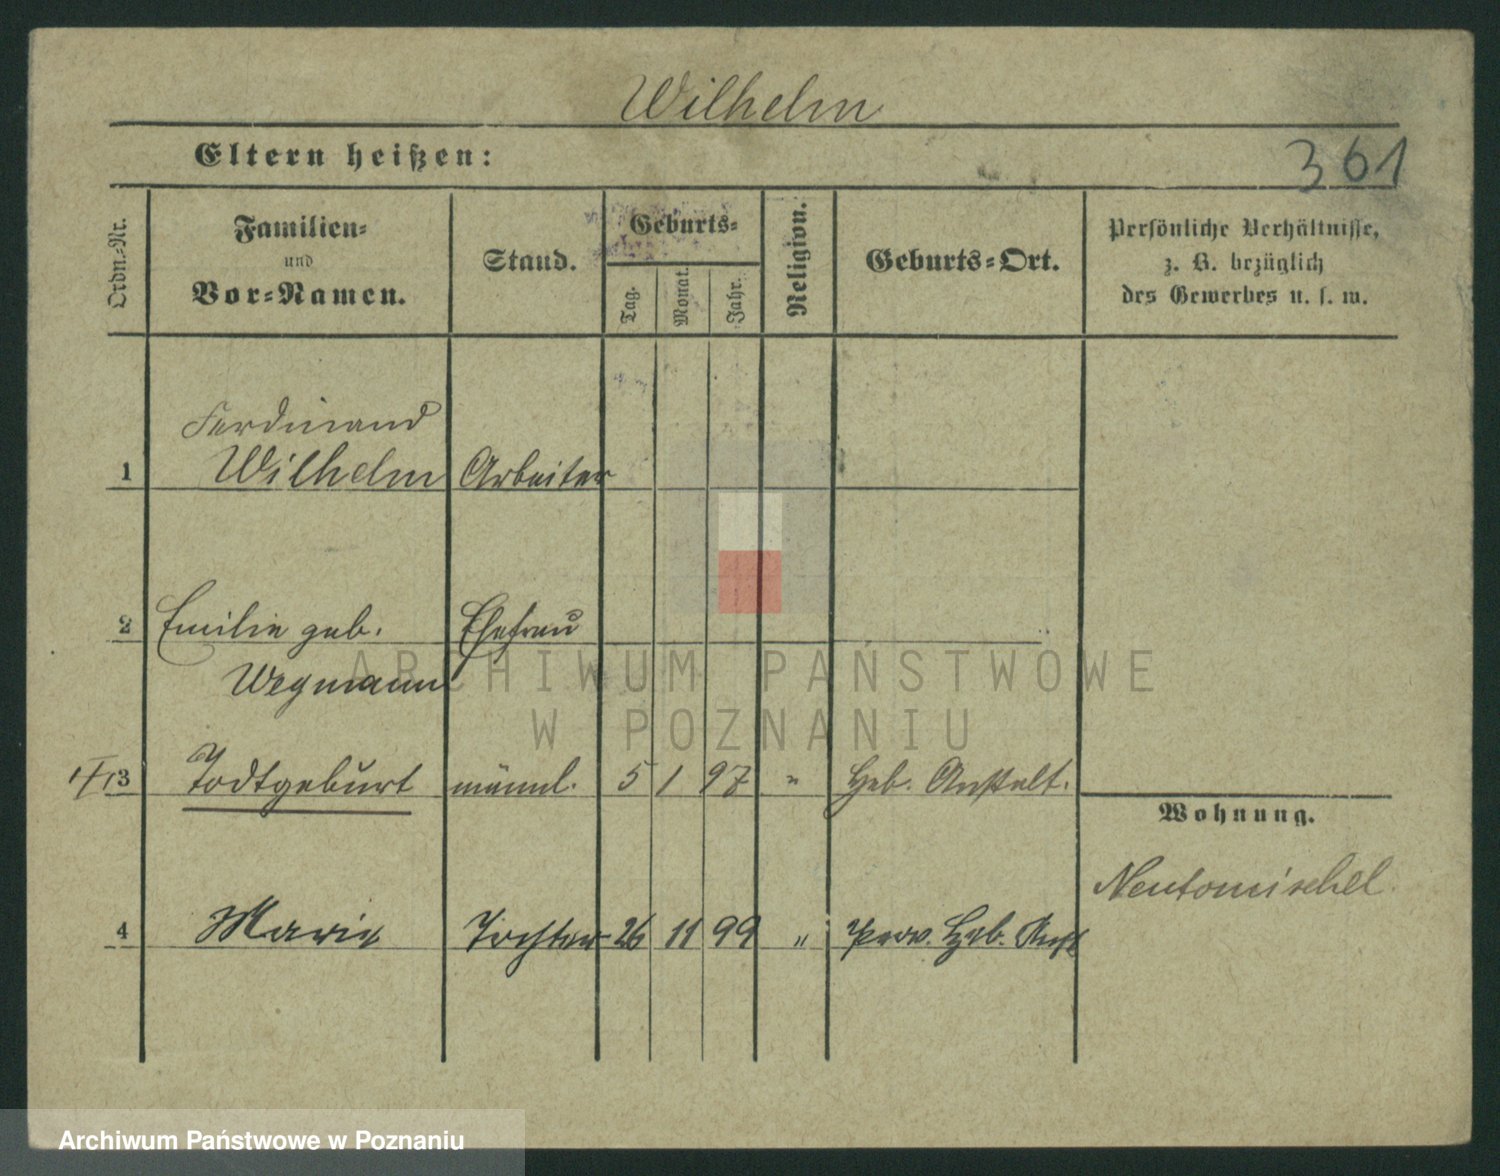 Wilhelm
Eltern heißen:
361
Ordn.-Nr.
Familien-
und
Vor-Namen.
Stand.
Geburts-
Tag.
Monat.
Jahr.
Religion.
Geburts-Ort.
Persönliche Verhältnisse,
z. B. bezüglich
des Gewerbes u. s. w.
Ferdinand
1 Wilhelm Arbeiter
2 Emilie geb. Ehefrau
Wegmann
ARCHIWUM PAŃSTWOWE
W POZNANIU
3 Todtgeburt männl. 5 1 97 " Heb. Anstalt.
Wohnung.
Neutomischel.
4 Marie Tochter 26 11 99 " Prov. Heb. Anst
Archiwum Państwowe w Poznaniu